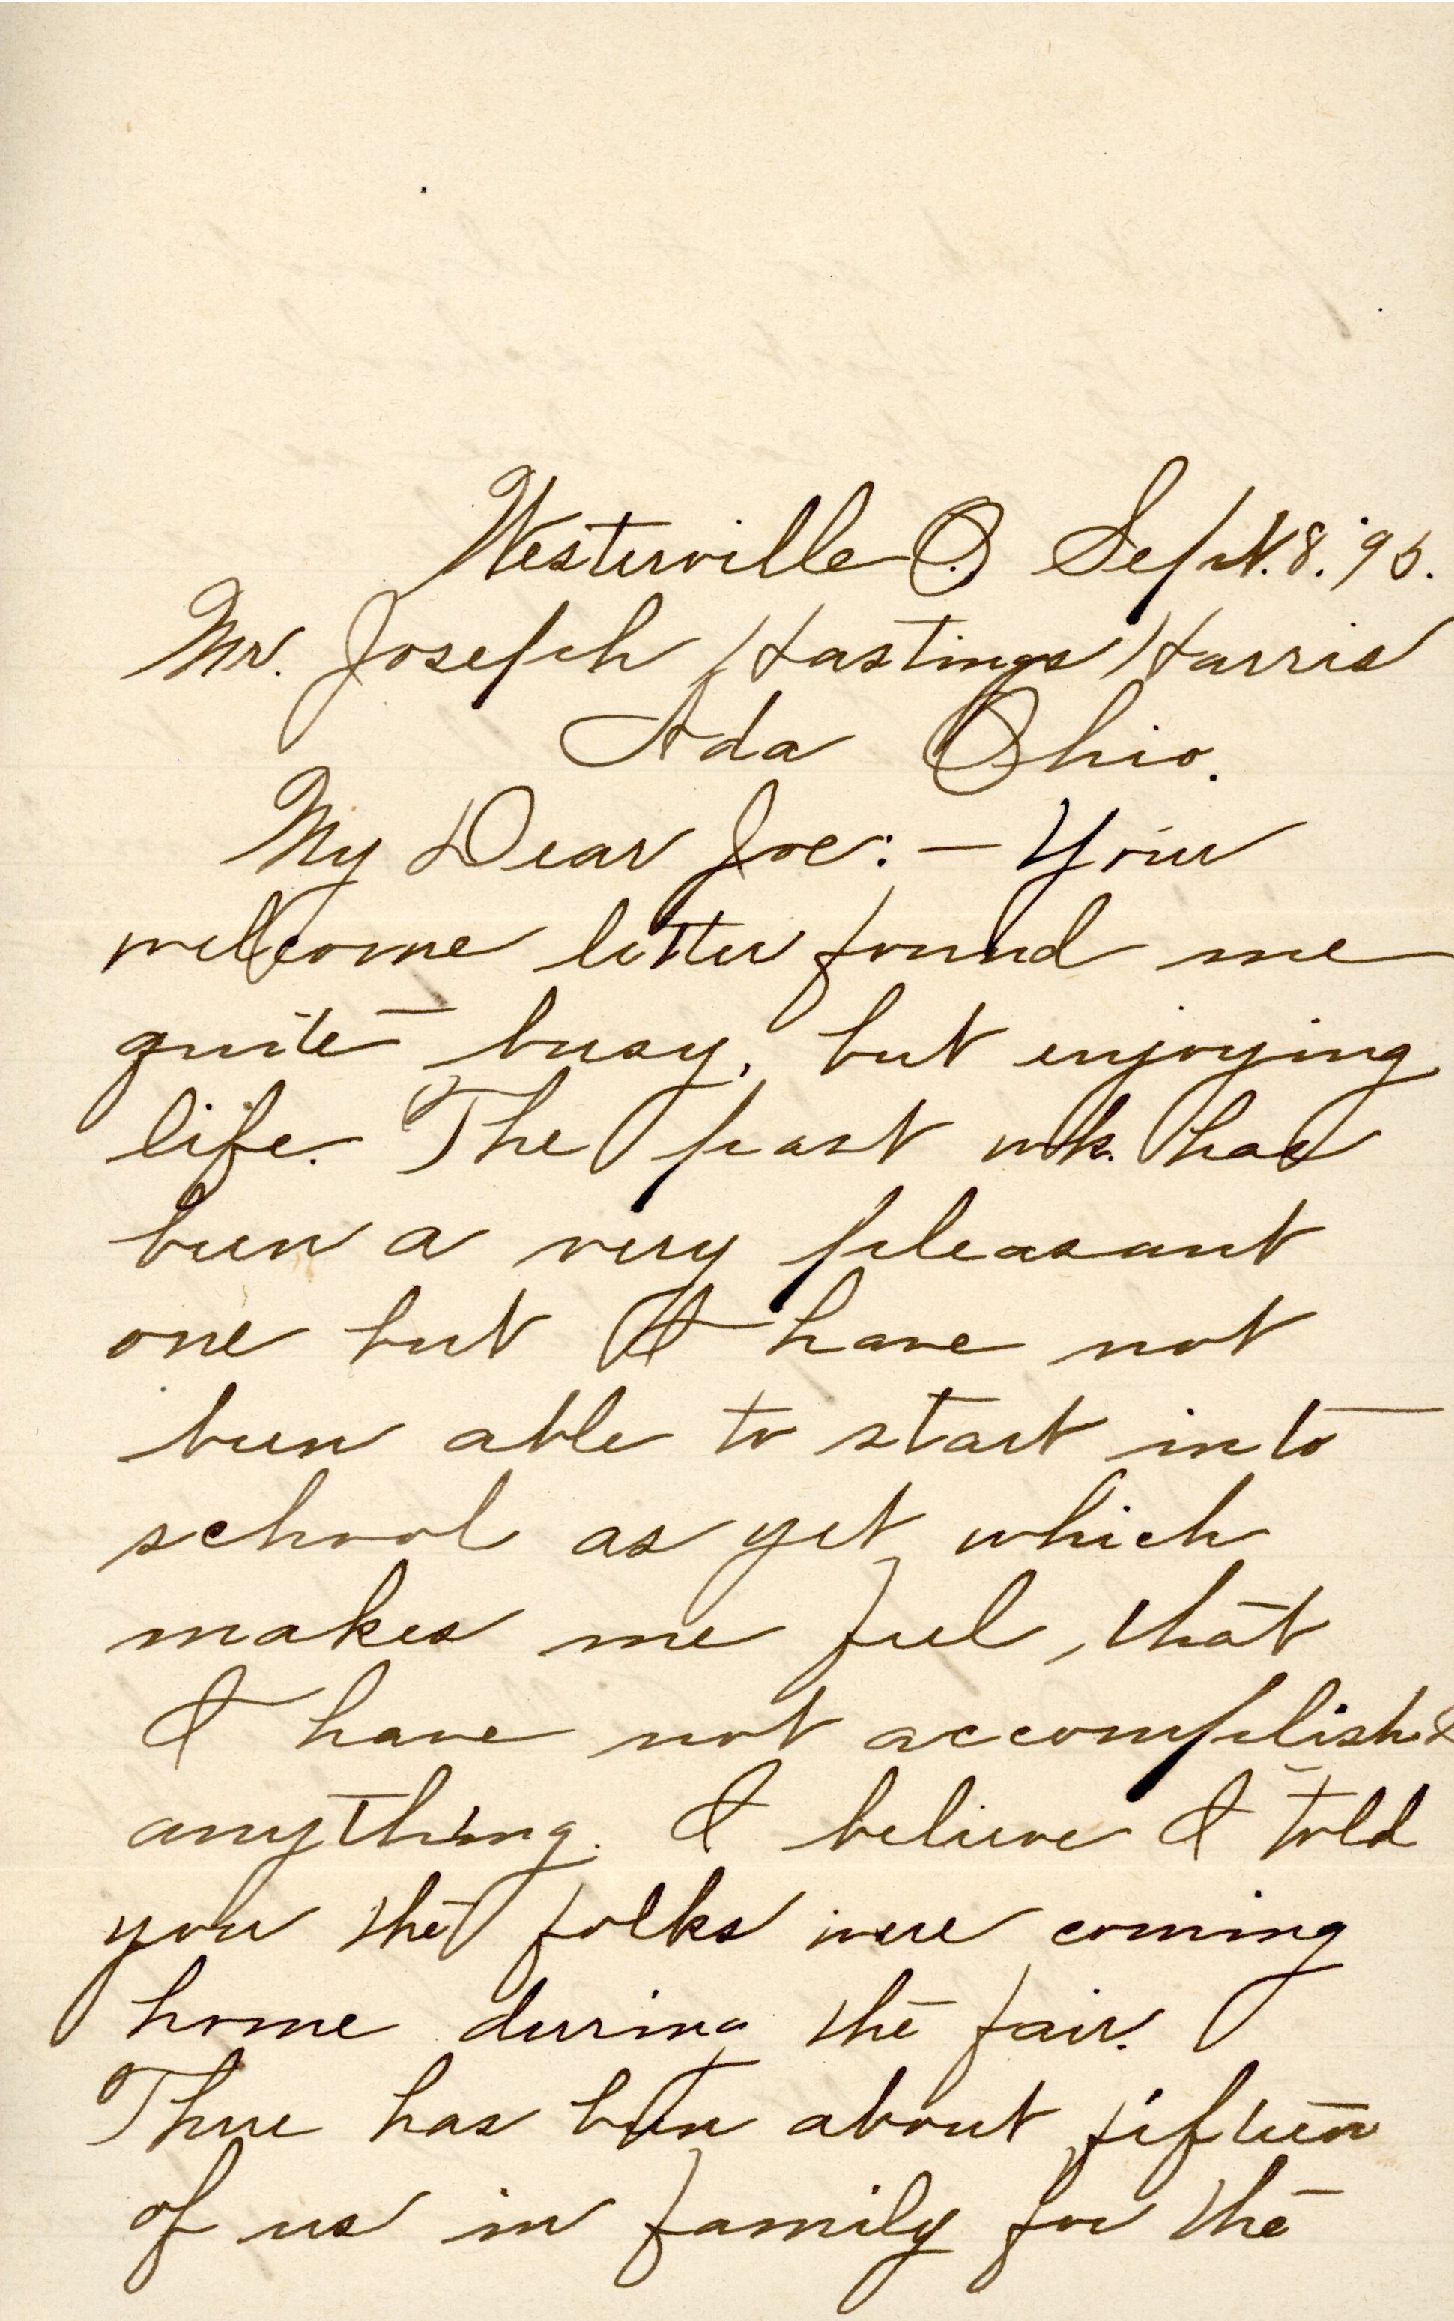 Westerville O. Sept. 8. '95.
Mr. Joseph Hastings Harris
Ada Ohio.
My Dear Joe: — Your
welcome letter found me
quite busy, but enjoying
life. The past wk. has
been a very pleasant
one but I have not
been able to start into
school as yet which
makes me feel, that
I have not accomplished
anything. I believe I told
you the folks were coming
home during the fair.
There has been about fifteen
of us in family for the